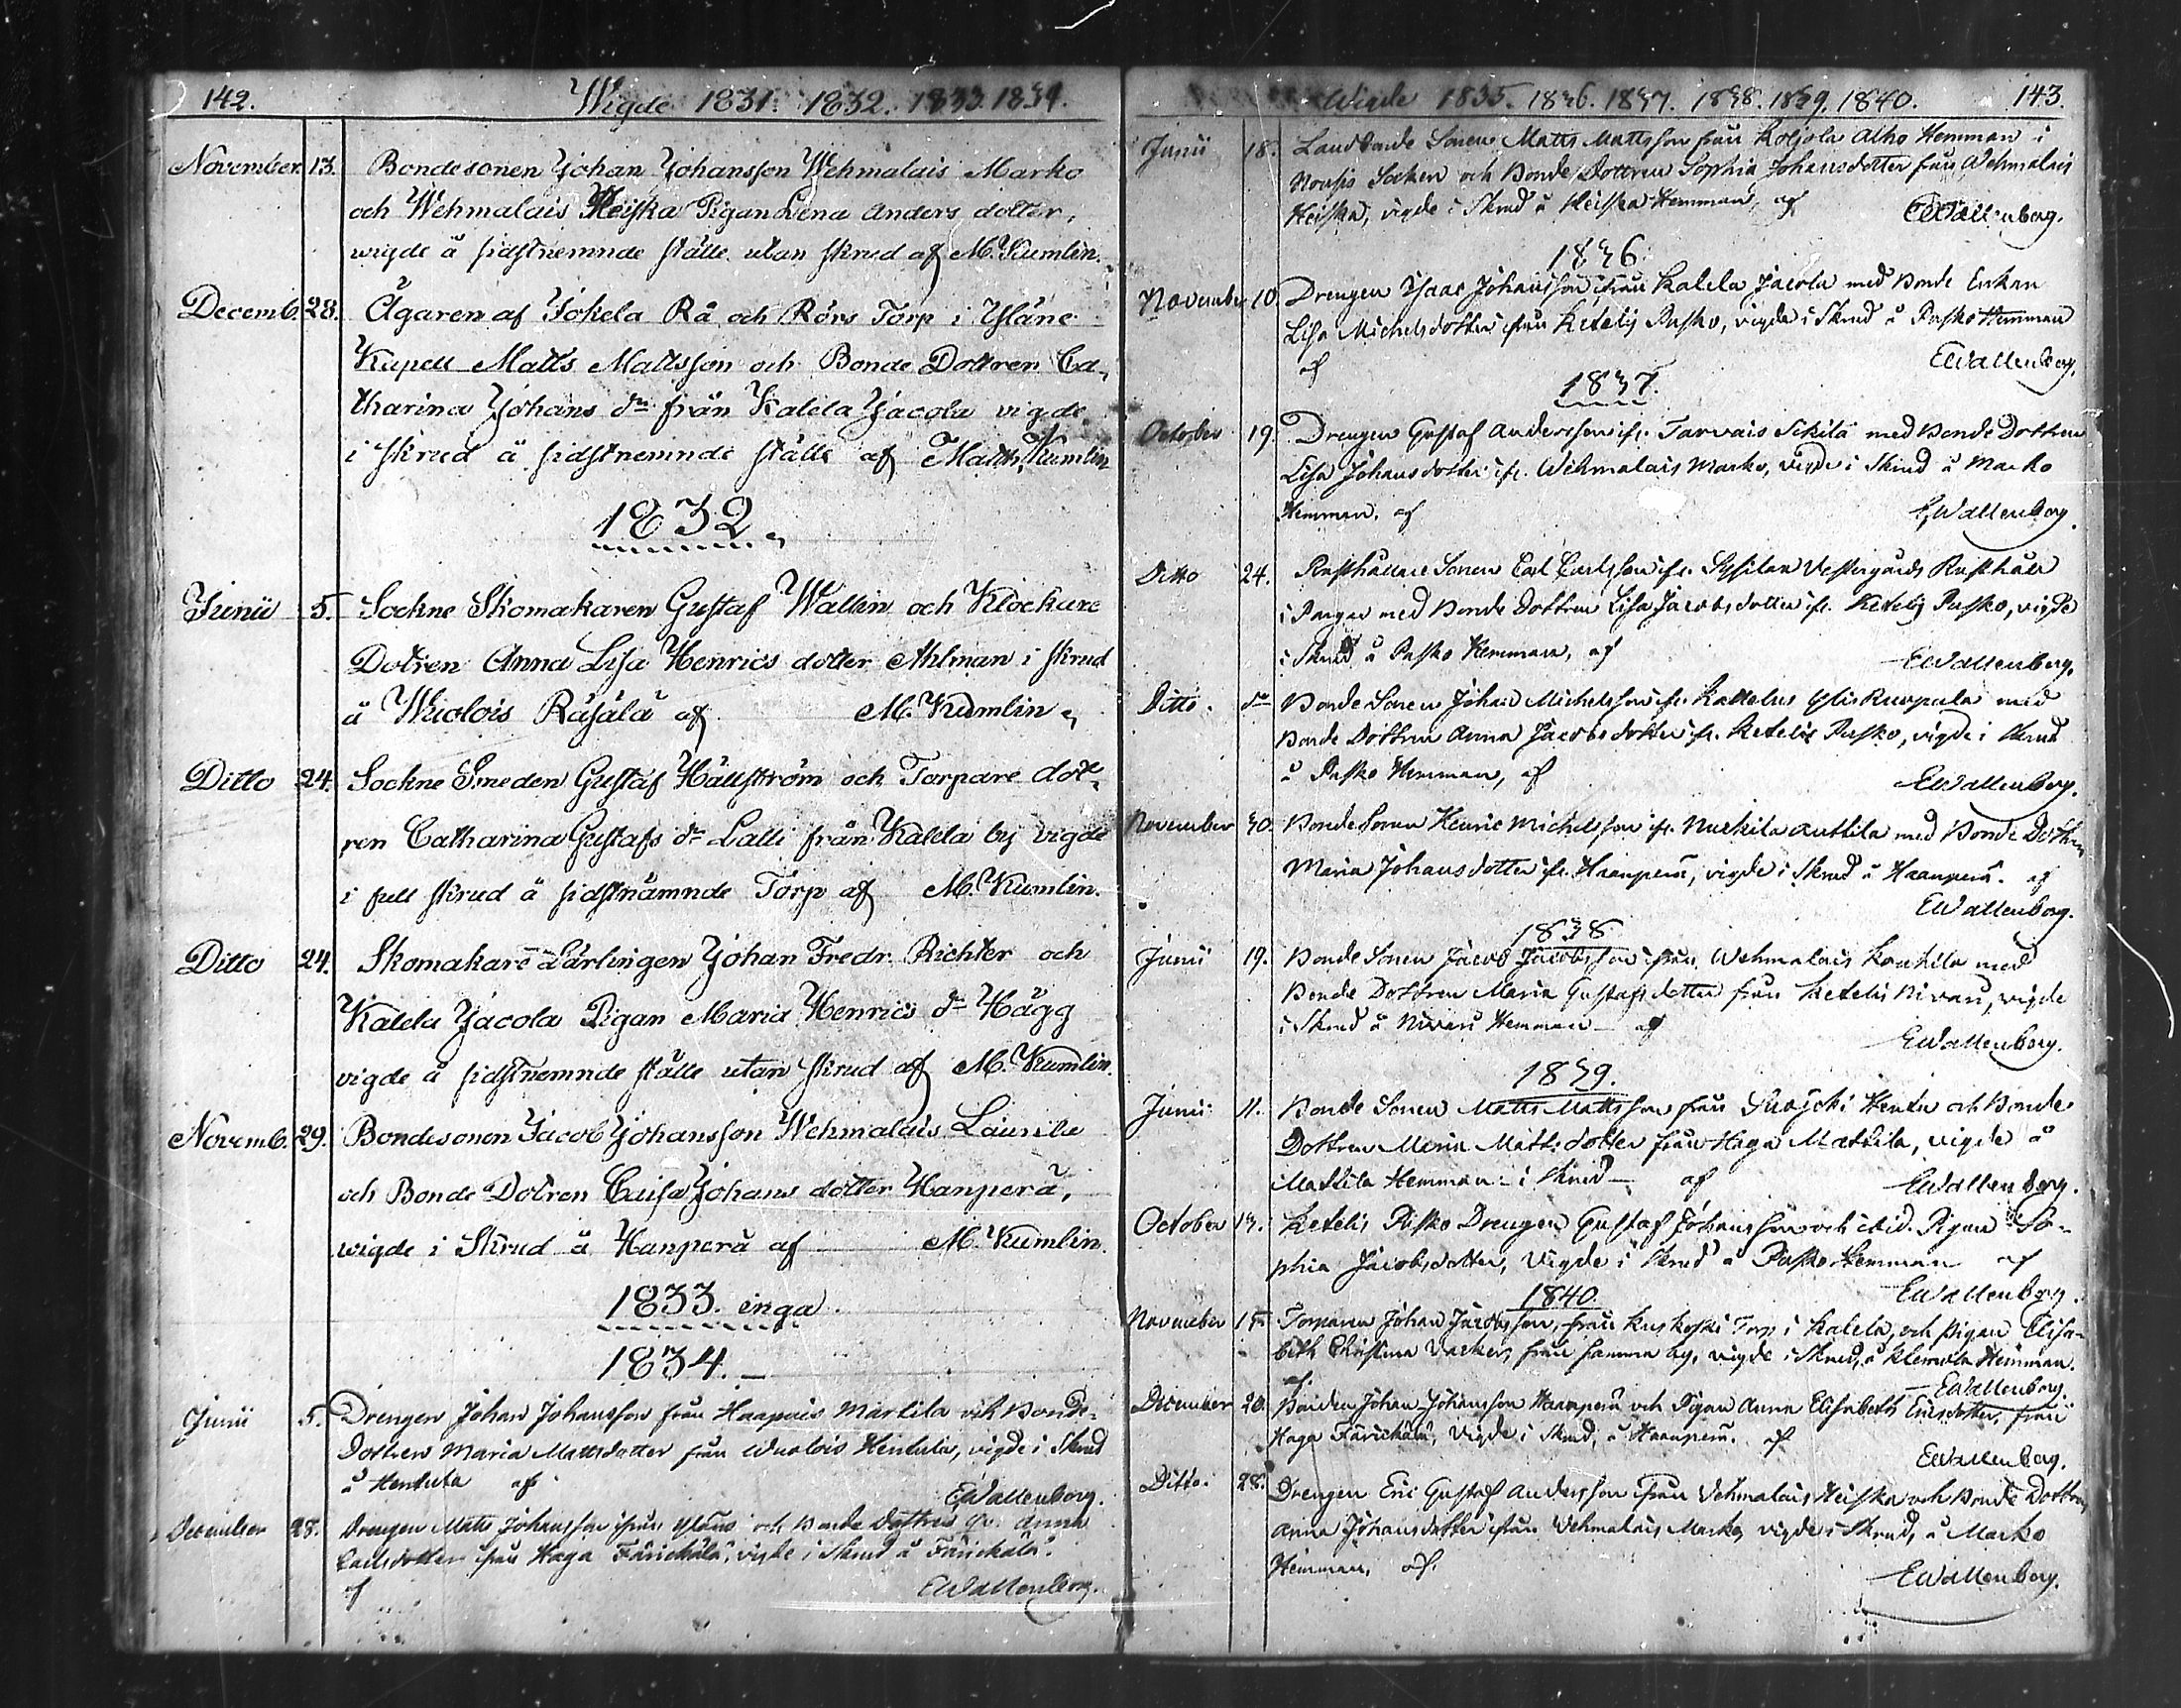 142. Wigde 1831. 1832. 1833. 1834.
November 13. Bondesonen Johan Johansson Wehmalais Marko
och Wehmalais Heiska Pigan Lena Anders dotter,
wigde å sidstnemnde ställe utan skrud af M. Kumlin.
Decemb. 28. Ägaren af Jokela Rå och Rörs Torp i Yläne
Kapell Matts Mattsson och Bonde Dottren Ca-
tharina Johans dr från Kalela Jacola vigde
i skrud å sidstnemnde ställe af Matth. Kumlin
1832
Junii 5. Sockne Skomakaren Gustaf Wallin och Klockare
Dotren Anna Lisa Henrics dotter Ahlman i skrud
å Wuolois Räsälä af M. Kumlin
Ditto 24. Sockne Smeden Gustaf Hällström och Torpare dot-
ren Catharina Gustafs dr Lalli från Kalela by vigde
i full skrud å sidstnämnde Torp af M. Kumlin.
Ditto 24. Skomakare Lärlingen Johan Fredr. Richter och
Kalela Jacola Pigan Maria Henrics dr Hägg
vigde å sidstnemnde ställe utan skrud af M. Kumlin.
Novemb. 29. Bondesonen Jacob Johansson Wehmalais Laurila
och Bonde Dotren Caisa Johans dotter Hanperä,
wigde i Skrud å Hanperä af M. Kumlin.
1833. inga
1834.
Junii 5. Drengen Johan Johansson från Haapais Markila och Bonde-
Dottren Maria Mattsdotter från Wuolois Hentula, vigde i Skrud
å Hentula af
EWallenberg.
December 28. Drengen Matts Johansson från Yläne och Bonde Dottren Anna
Carlsdotter från Haga Färickälä, vigde i Skrud å Färickälä.
af EWallenberg.
Wigde 1835. 1836. 1837. 1838. 1839. 1840. 143.
Junii 18. Landbonde Sonen Matts Mattsson från Koljola Alho Hemman i
Nousis Socken och Bonde Dottren Sophia Johansdotter från Wehmalais
Heiska, vigde i Skrud å Heiska Hemman, af EWallenberg.
1836
November 10. Drengen Isaac Johansson från Kalela Jacola med Bonde Enkan
Lisa Michelsdotter från Ketelis Pasko, vigde i Skrud å Pasko Hemman
af EWallenberg.
1837.
October 19. Drengen Gustaf Andersson fr. Tarvais Sikilä med Bonde Dottren
Lisa Johansdotter fr. Wehmalais Marko, vigde i Skrud å Marko
Hemman, af EWallenberg.
Ditto 24. Rusthållare Sonen Carl Carlsson fr. Vestergårds Rusthåll
i Pargas med Bonde Dottren Lisa Jacobsdotter fr. Ketelis Pasko, vigde
i Skrud å Pasko Hemman, af EWallenberg.
Ditto. do Bonde Sonen Johan Michelsson fr. Kallelus Ylis med
Bonde Dottren Anna Jacobsdotter fr. Ketelis Pasko, vigde i Skrud
å Pasko Hemman, af EWallenberg.
November 30. Bonde Sonen Henric Michelsson fr. Nuckila Anttila med Bonde Dottren
Maria Johansdotter fr. Haanperä, vigde i Skrud å Haanperä. af
EWallenberg.
1838
Junii 19. Bonde Sonen Jacob Jacobsson från Wehmalais Kautila med
Bonde Dottren Maria Gustafsdotter från Ketelis Nivari, vigde
i Skrud å Nivari Hemman af EWallenberg.
1839.
Junii 11. Bonde Sonen Matts Mattsson från Suojoki Hentu och Bonde
Dottren Maria Mattsdotter från Haga Mattila, vigde å
Mattila Hemman i Skrud af EWallenberg.
October 13. Ketelis Pasko Drengen Gustaf Johansson och ibid. Pigan So-
phia Jacobsdotter, Vigde i Skrud å Pasko Hemman af
EWallenberg.
1840
November 15 Torparen Johan Jacobsson, från Kuskoski Torp i Kalela, och Pigan Elisa-
beth Christina från samma by, vigde i Skrud, å Klemola Hemman.
af. EWallenberg.
December 20. Bonden Johan Johansson Haanperä och Pigan Anna Elisabeth Ericsdotter, från
Haga Färickälä, Vigde i Skrud, å Haanperä. af
EWallenberg.
Ditto. 28. Drengen Eric Gustaf Andersson från Vehmalais Heiska och Bonde Dottren
Anna Johansdotter från Wehmalais Marko, vigde i Skrud, å Marko
Hemman, af. EWallenberg.